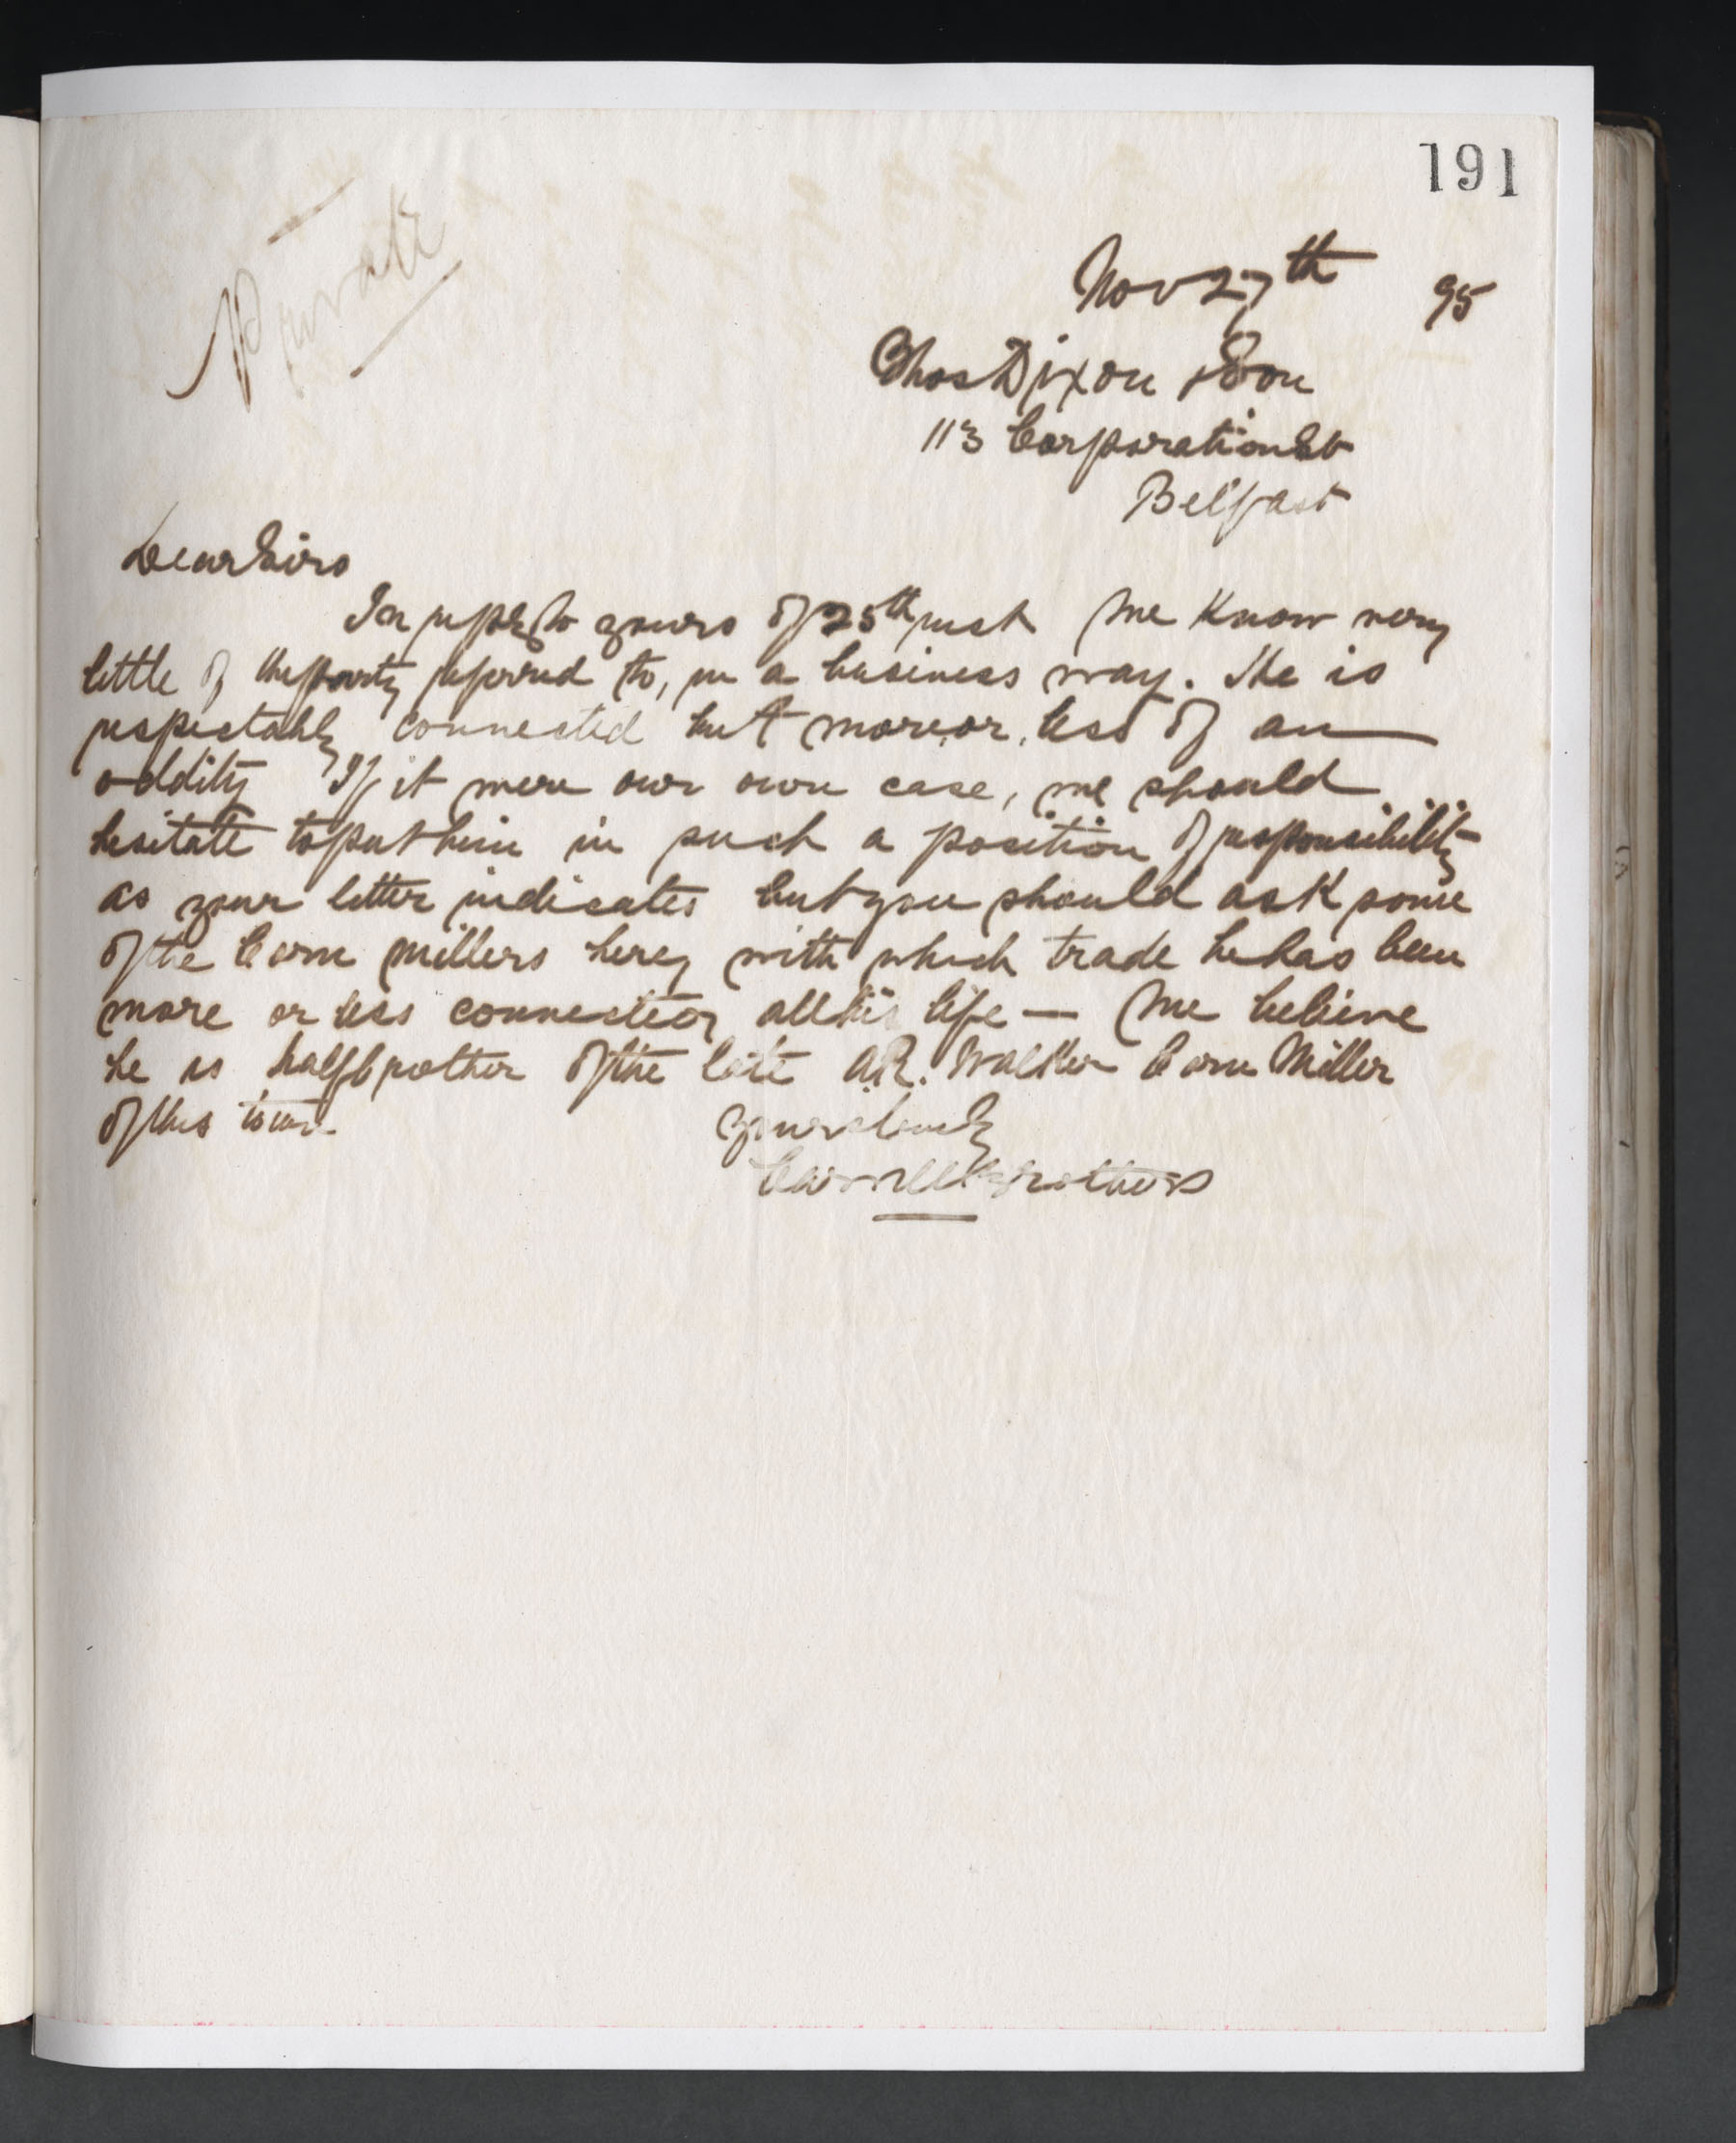 191
Private
Nov 27th 95
Thos Dixon & Son
113 Corporation St
Belfast
Dear Sirs
In reply to yours of 25th inst We know very
little of the party referred to, in a business way. He is
respectably connected but more or less of an
oddity If it were our own case, we should
hesitate to put him in such a position of responsibility
as your letter indicates but you should ask some
of the Corn Millers here, with which trade he has been
more or less connected all his life — We believe
he is half brother of the late A.R. Walker Corn Miller
of this town.
Yours truly
Brothers